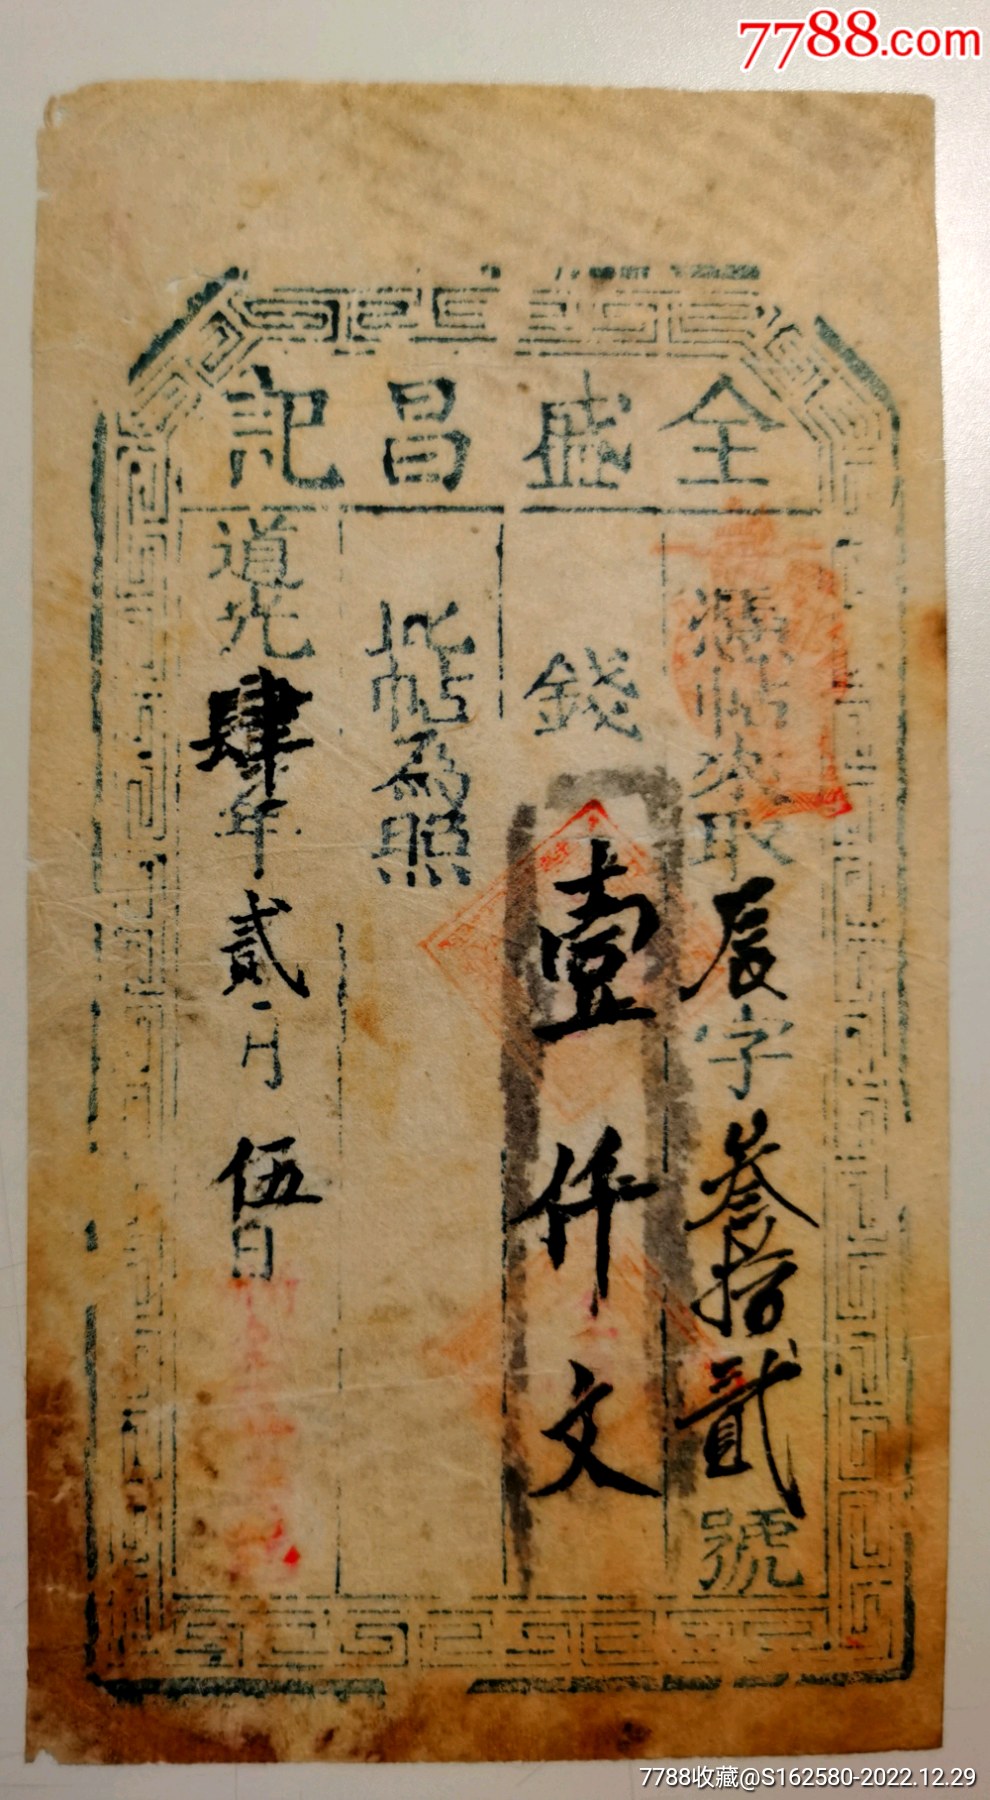 7788.com
全盛昌記
憑帖來取辰字叁拾貳號
錢壹仟文
此帖為照
道光肆年貳月伍日
7788收藏@S162580-2022.12.29